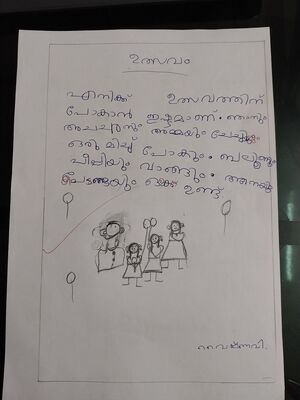 ഉത്സവം
എനിക്ക് ഉത്സവത്തിന്
പോകാൻ ഇഷ്ടമാണ്. ഞാനും
അച്ചനും അമ്മയും ചേച്ചിയും
ഒരുമിച്ച് പോകും. ബലൂണും
പീപ്പിയും വാങ്ങും. ആനയും
ഒക്കെ ഉണ്ട്
വൈഷ്ണവി.